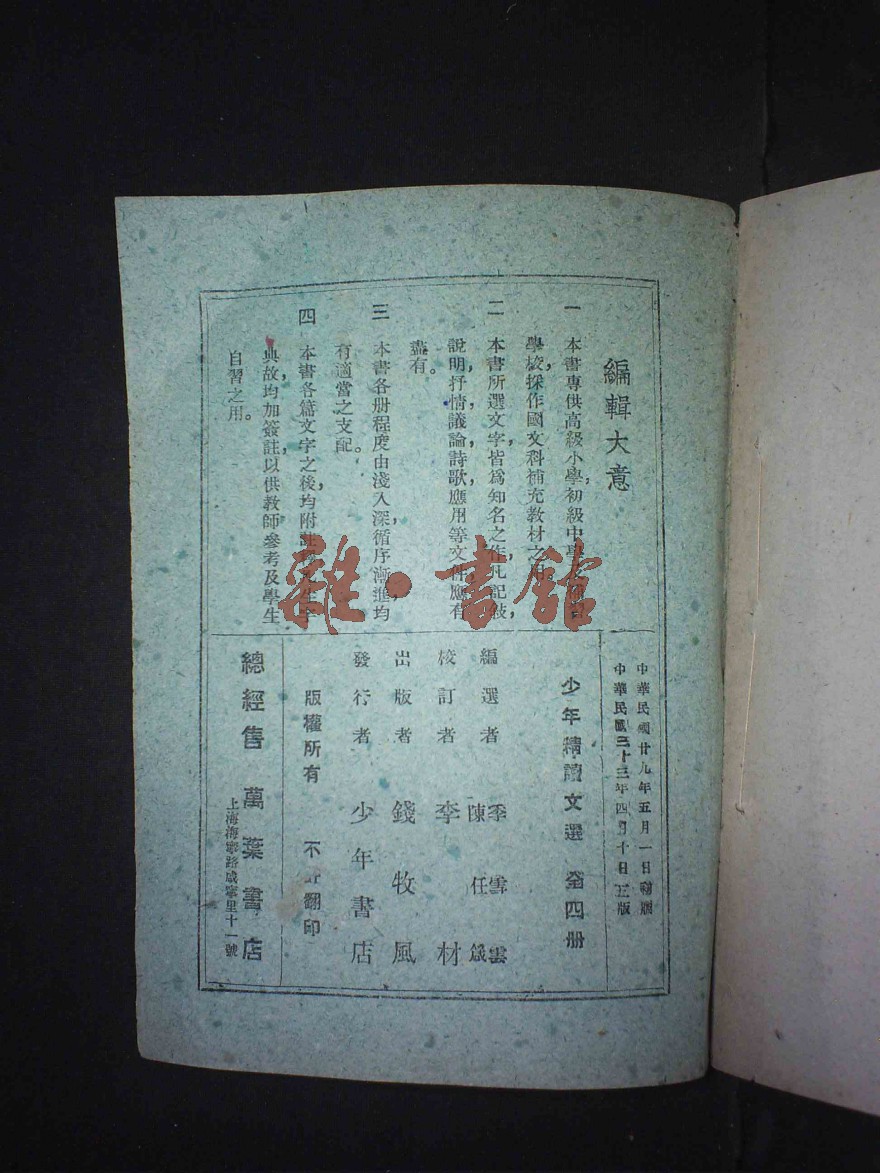 編輯大意
一　本書專供高級小學，初級中學
學校，採作國文科補充教材之用。
二　本書所選文字，皆爲知名之作，凡記敍，
說明，抒情，議論，詩歌，應用等文件，應有
盡有。
三　本書各册程度，由淺入深，循序漸進，均
有適當之支配。
四　本書各篇文字之後，均附註
典故，均加簽註，以供教師參考及學生
自習之用。
雜·書館
中華民國廿九年五月一日初版
中華民國三十三年四月十日五版
少年精讀文選　全四册
編選者　季雲　陳任
校訂者　李材
出版者　錢牧風
發行者　少年書店
版權所有　不許翻印
總經售　萬葉書店
上海海寧路咸寧里十一號